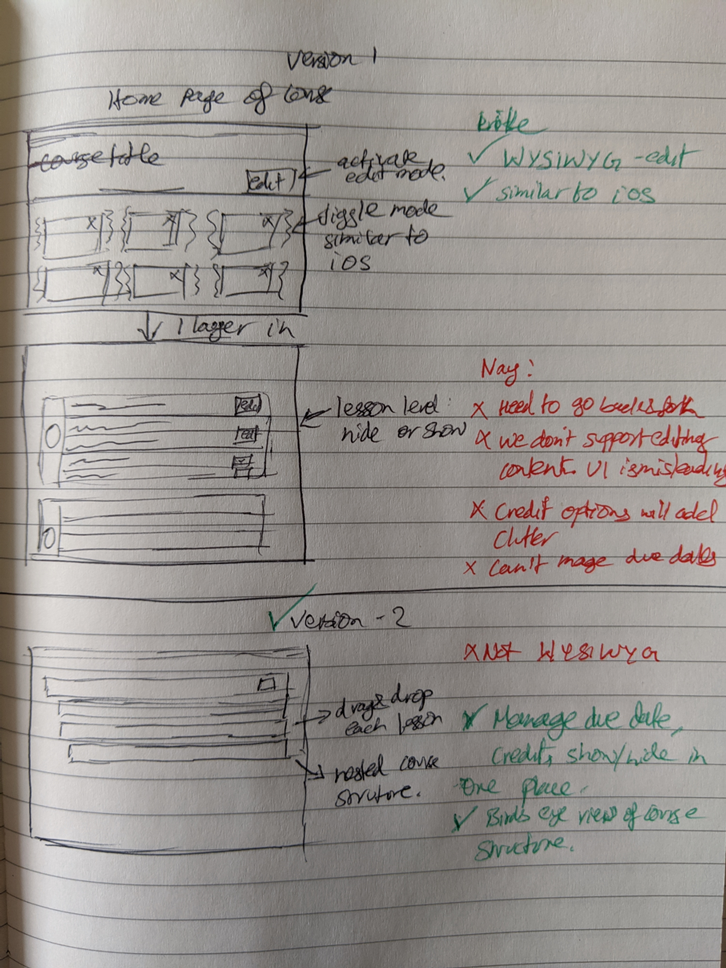 Version 1
Home page of conse
course table
edit
activate
edit mode.
✓ WYSIWYG - edit
✓ similar to ios
x x x
Jiggle mode
similar to
iOS
x x x
↓ 1 layer in
edit
lesson level:
hide or show
Nay:
x need to go back & forth
x we don't support editing
content. UI is misleading
x Credit options will add
clutter
x Can't mage due dates
✓ Version - 2
x Not WYSIWYG
drag & drop
each lesson
nested conse
struture.
✓ Manage due date,
Credits, show/hide in
one place.
✓ Birds eye view of conse
structure.